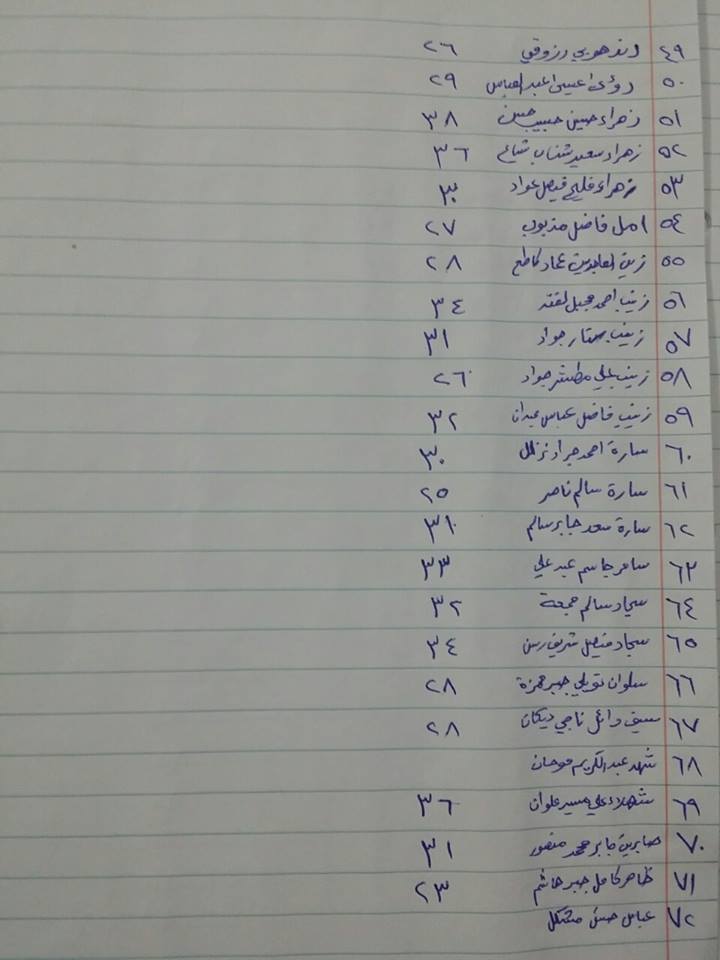 ٤٩ رزوقي ٢٦
٥٠ رؤى عيسى عبد العباس ٢٩
٥١ زهراء حسين حبيب حسن ٣٨
٥٢ زهراء سعيد شناب شياع ٣٦
٥٣ زهراء فليح فيصل عواد ٣٠
٥٤ امل فاضل مذبوب ٢٧
٥٥ زين العابدين عماد كاطع ٢٨
٥٦ زينب احمد مجبل لفته ٣٤
٥٧ زينب ستار جواد ٣١
٥٨ زينب علي مطشر جواد ٢٦
٥٩ زينب فاضل عباس عيدان ٣٢
٦٠ سارة احمد جراد نزال ٣٠
٦١ سارة سالم ناصر ٢٥
٦٢ سارة سعد جابر سالم ٣١
٦٣ سامر جاسم عبد علي ٣٣
٦٤ سجاد سالم جمعة ٣٢
٦٥ سجاد فيصل شريف رسن ٣٤
٦٦ سلوان نويلي جبر حمزة ٢٨
٦٧ سيف وائل ناجي ديكان ٢٨
٦٨ شهد عبد الكريم فرحان
٦٩ شهلاء علي مسير علوان ٣٦
٧٠ صابرين جابر محمد منصور ٣١
٧١ ظاهر كامل جبر هاشم ٢٣
٧٢ عباس حسن مشكل